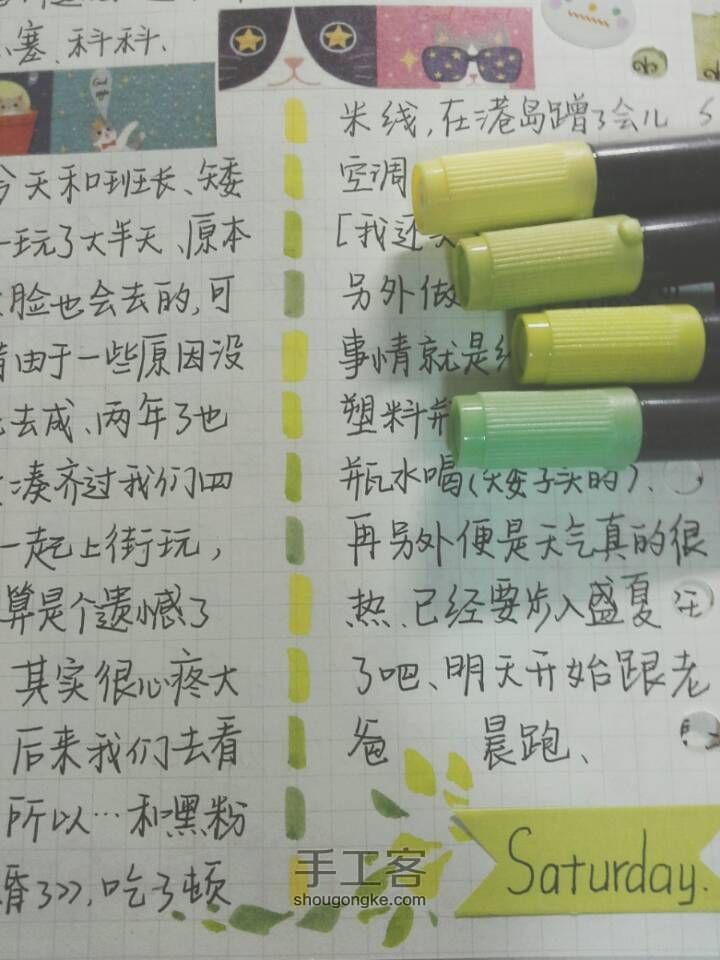 塞、科科.
今天和班长、矮
一玩了大半天、原本
脸也会去的,可
惜由于一些原因没
去成、两年了也
凑齐过我们四
一起上街玩,
算是个遗憾了
其实很心疼大
后来我们去看
所以…和嘿粉
昏了>>,吃了顿
米线,在港岛蹭了会儿
空调
[我还
另外做
事情就是
塑料瓶
瓶水喝(矮子买的)、
再另外便是天气真的很
热、已经要步入盛夏
了吧、明天开始跟老
爸 晨跑、
Saturday.
手工客
shougongke.com